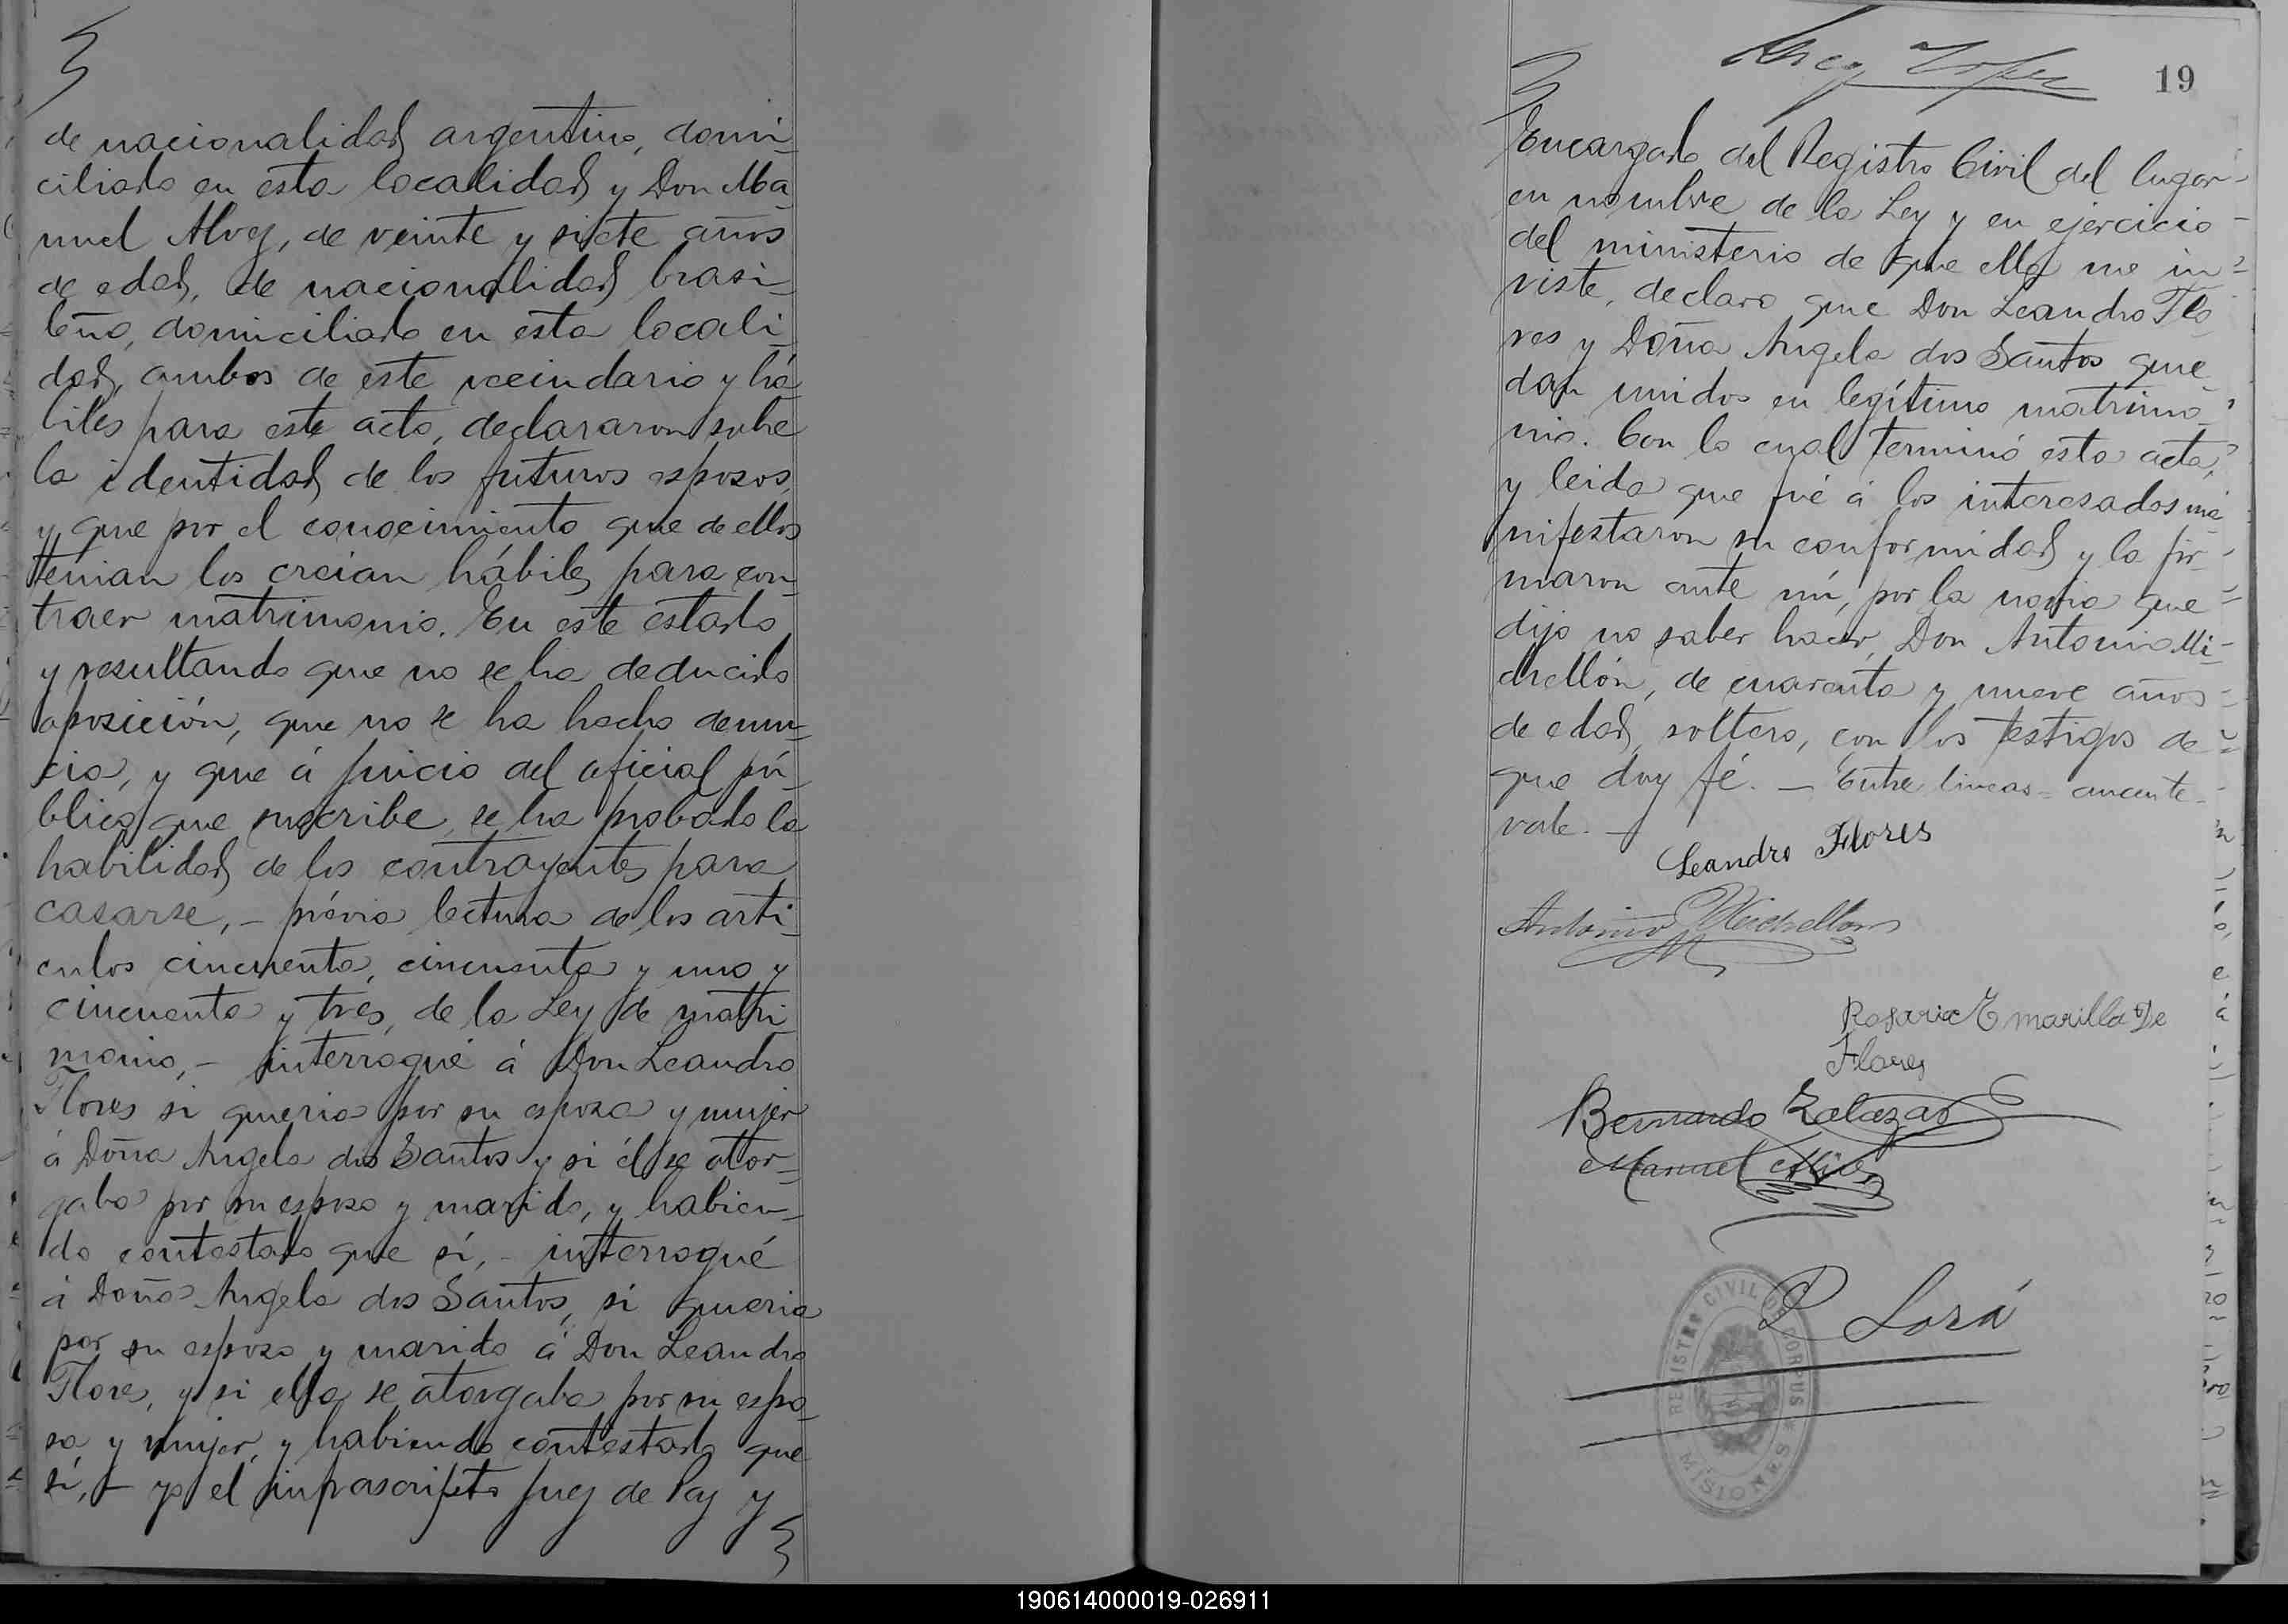 de nacionalidad argentino, domi-
ciliado en esta localidad y Don Ma-
nuel Alvez, de veinte y siete años
de edad, de nacionalidad brasi-
leño, domiciliado en esta locali-
dad, ambos de este vecindario y há-
biles para este acto, declararon sobre
la identidad de los futuros esposos,
y que por el conocimiento que de ellos
tenian los creian hábiles para con-
traer matrimonio. En este estado
y resultando que no se ha deducido
oposición, que no se ha hecho denun-
cia, y que á juicio del oficial pú-
blico que suscribe, se ha probado la
habilidad de los contrayentes para
casarse, - prévia lectura de los arti-
culos cincuenta, cincuenta y uno y
cincuenta y tres, de la Ley de matri-
monio, - interrogué á Don Leandro
Flores si queria por su esposa y mujer
á Doña Angela dos Santos y si él se otor-
gaba por su esposo y marido, y habien-
do contestado que sí, - interrogué
á Doña Angela dos Santos, si queria
por su esposo y marido á Don Leandro
Flores, y si ella se otorgaba por su espo-
sa y mujer, y habiendo contestado que
sí, - yo el infrascripto Juez de Paz y
19
Encargado del Registro Civil del lugar
en nombre de la Ley y en ejercicio
del ministerio de que ella me in-
viste, declaro que Don Leandro Flo-
res y Doña Angela dos Santos que-
dan unidos en legítimo matrimo-
nio. Con lo cual terminó esta acta,
y leida que fué á los interesados ma-
nifestaron su conformidad y la fir-
maron ante mí, por la novia que
dijo no saber hacer, Don Antonio Mi-
chellón, de cuarenta y nueve años
de edad, soltero, con los testigos de
que doy fé. - Entre lineas =
vale. -
Leandro Flores
Antonio Michellon
Rosaria Emarilla De
Flores
Bernardo Zalazar
Manuel Alves
P Lorá
REGISTRO CIVIL DE CORPUS
MISIONES
190614000019-026911